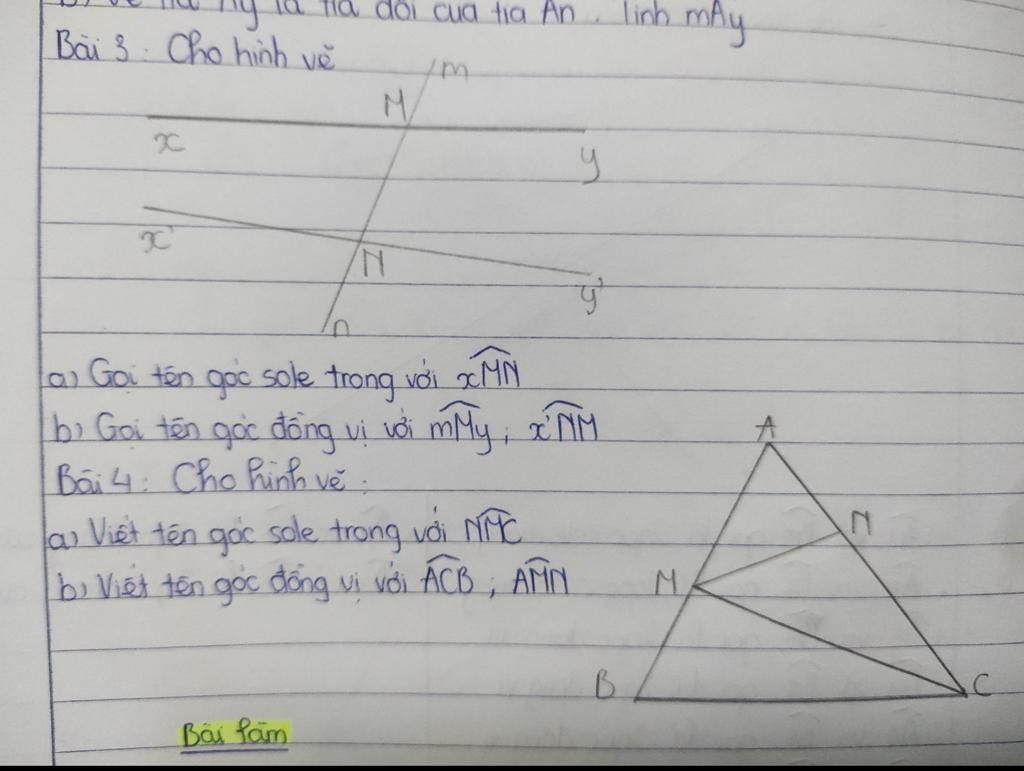 b) Vẽ tia Ay là tia đối của tia An. Tính mAy
Bài 3: Cho hình vẽ
m
M
x
y
x'
N
y'
n
a) Gọi tên góc sole trong với xMN
b) Gọi tên góc đồng vị với mMy; x'NM
Bài 4: Cho hình vẽ:
A
a) Viết tên góc sole trong với NMC
N
b) Viết tên góc đồng vị với ACB; AMN
M
B
C
Bài làm